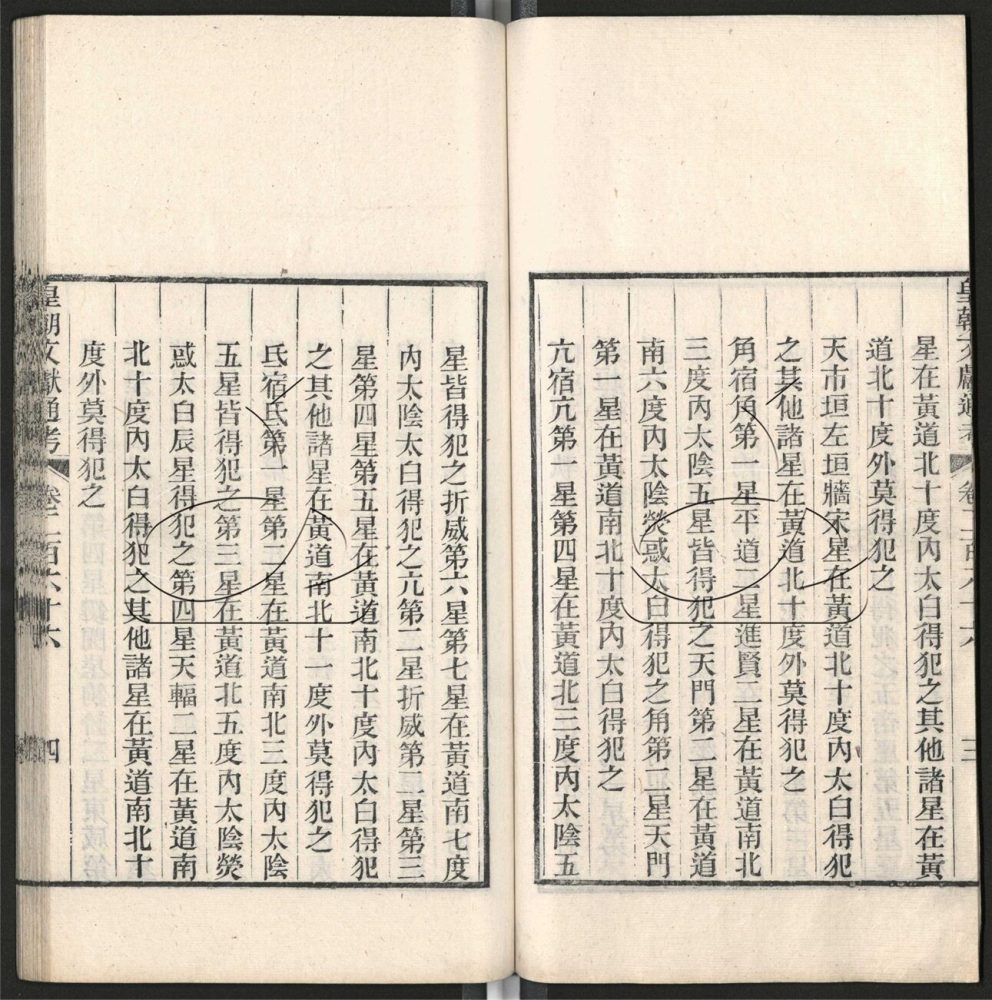 皇朝文獻通考 卷二百六十六 三
星在黃道北十度內太白得犯之其他諸星在黃
道北十度外莫得犯之
天市垣左垣牆宋星在黃道北十度內太白得犯
之其他諸星在黃道北十度外莫得犯之
角宿角第一星平道二星進賢一星在黃道南北
三度內太陰五星皆得犯之天門第一星在黃道
南六度內太陰熒惑太白得犯之角第二星天門
第一星在黃道南北十度內太白得犯之
亢宿亢第一星第四星在黃道北三度內太陰五
星皆得犯之折威第六星第七星在黃道南七度
內太陰太白得犯之亢第二星折威第一星第三
星第四星第五星在黃道南北十度內太白得犯
之其他諸星在黃道南北十一度外莫得犯之
氐宿氐第一星第二星在黃道南北三度內太陰
五星皆得犯之第三星在黃道北五度內太陰熒
惑太白辰星得犯之第四星天輻二星在黃道南
北十度內太白得犯之其他諸星在黃道南北十
度外莫得犯之
皇朝文獻通考 卷二百六十六 四